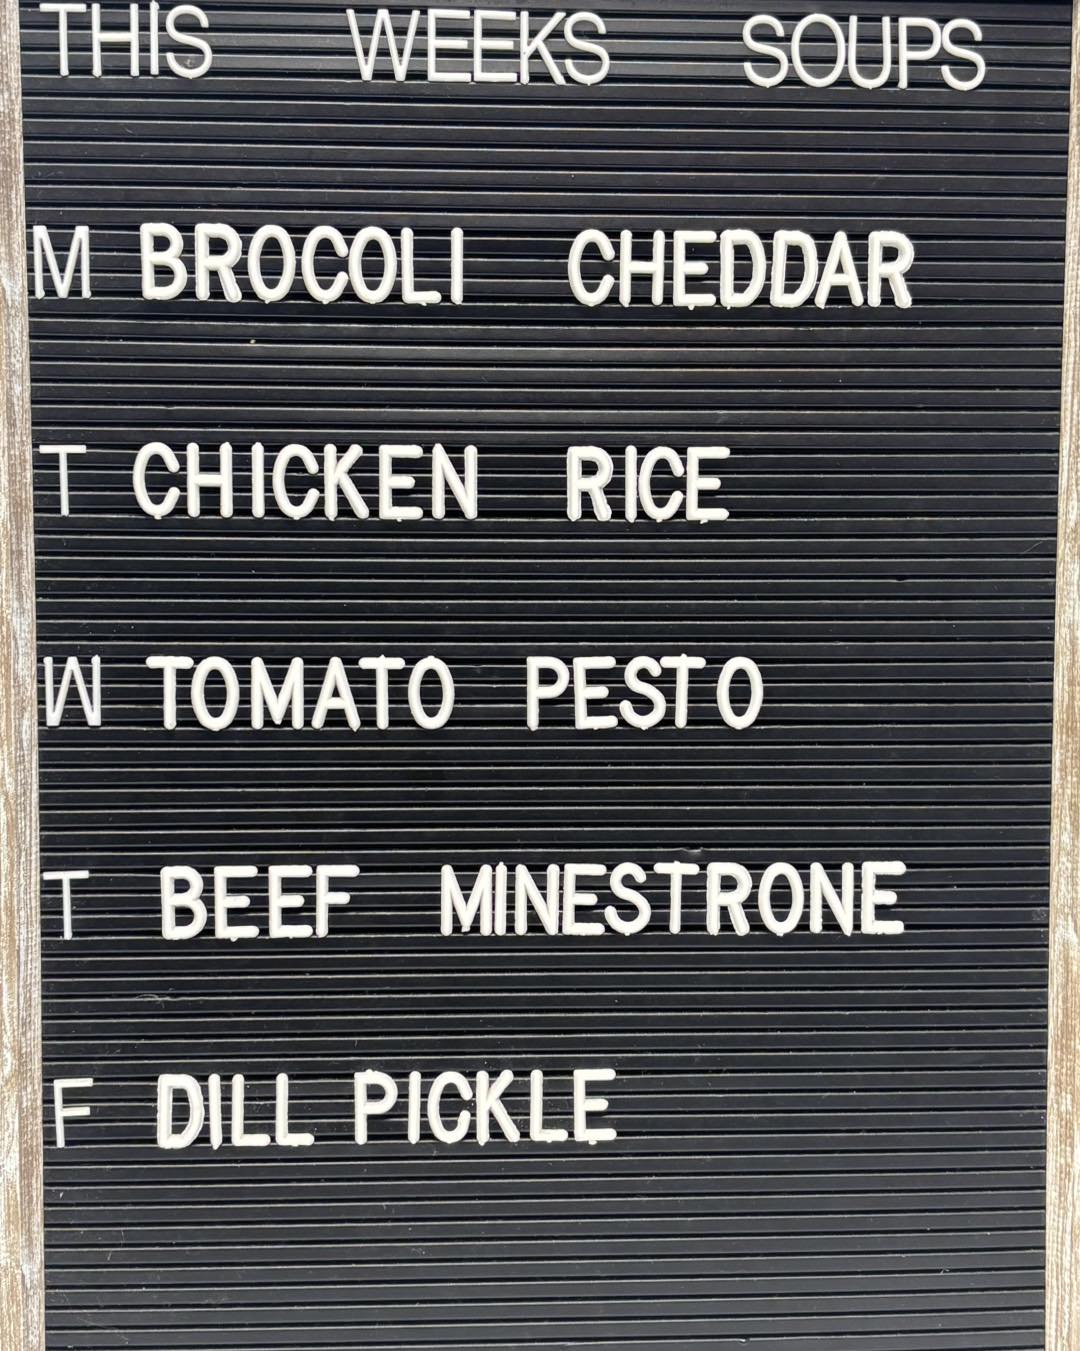 THIS WEEKS SOUPS
M BROCOLI CHEDDAR
T CHICKEN RICE
W TOMATO PESTO
T BEEF MINESTRONE
F DILL PICKLE